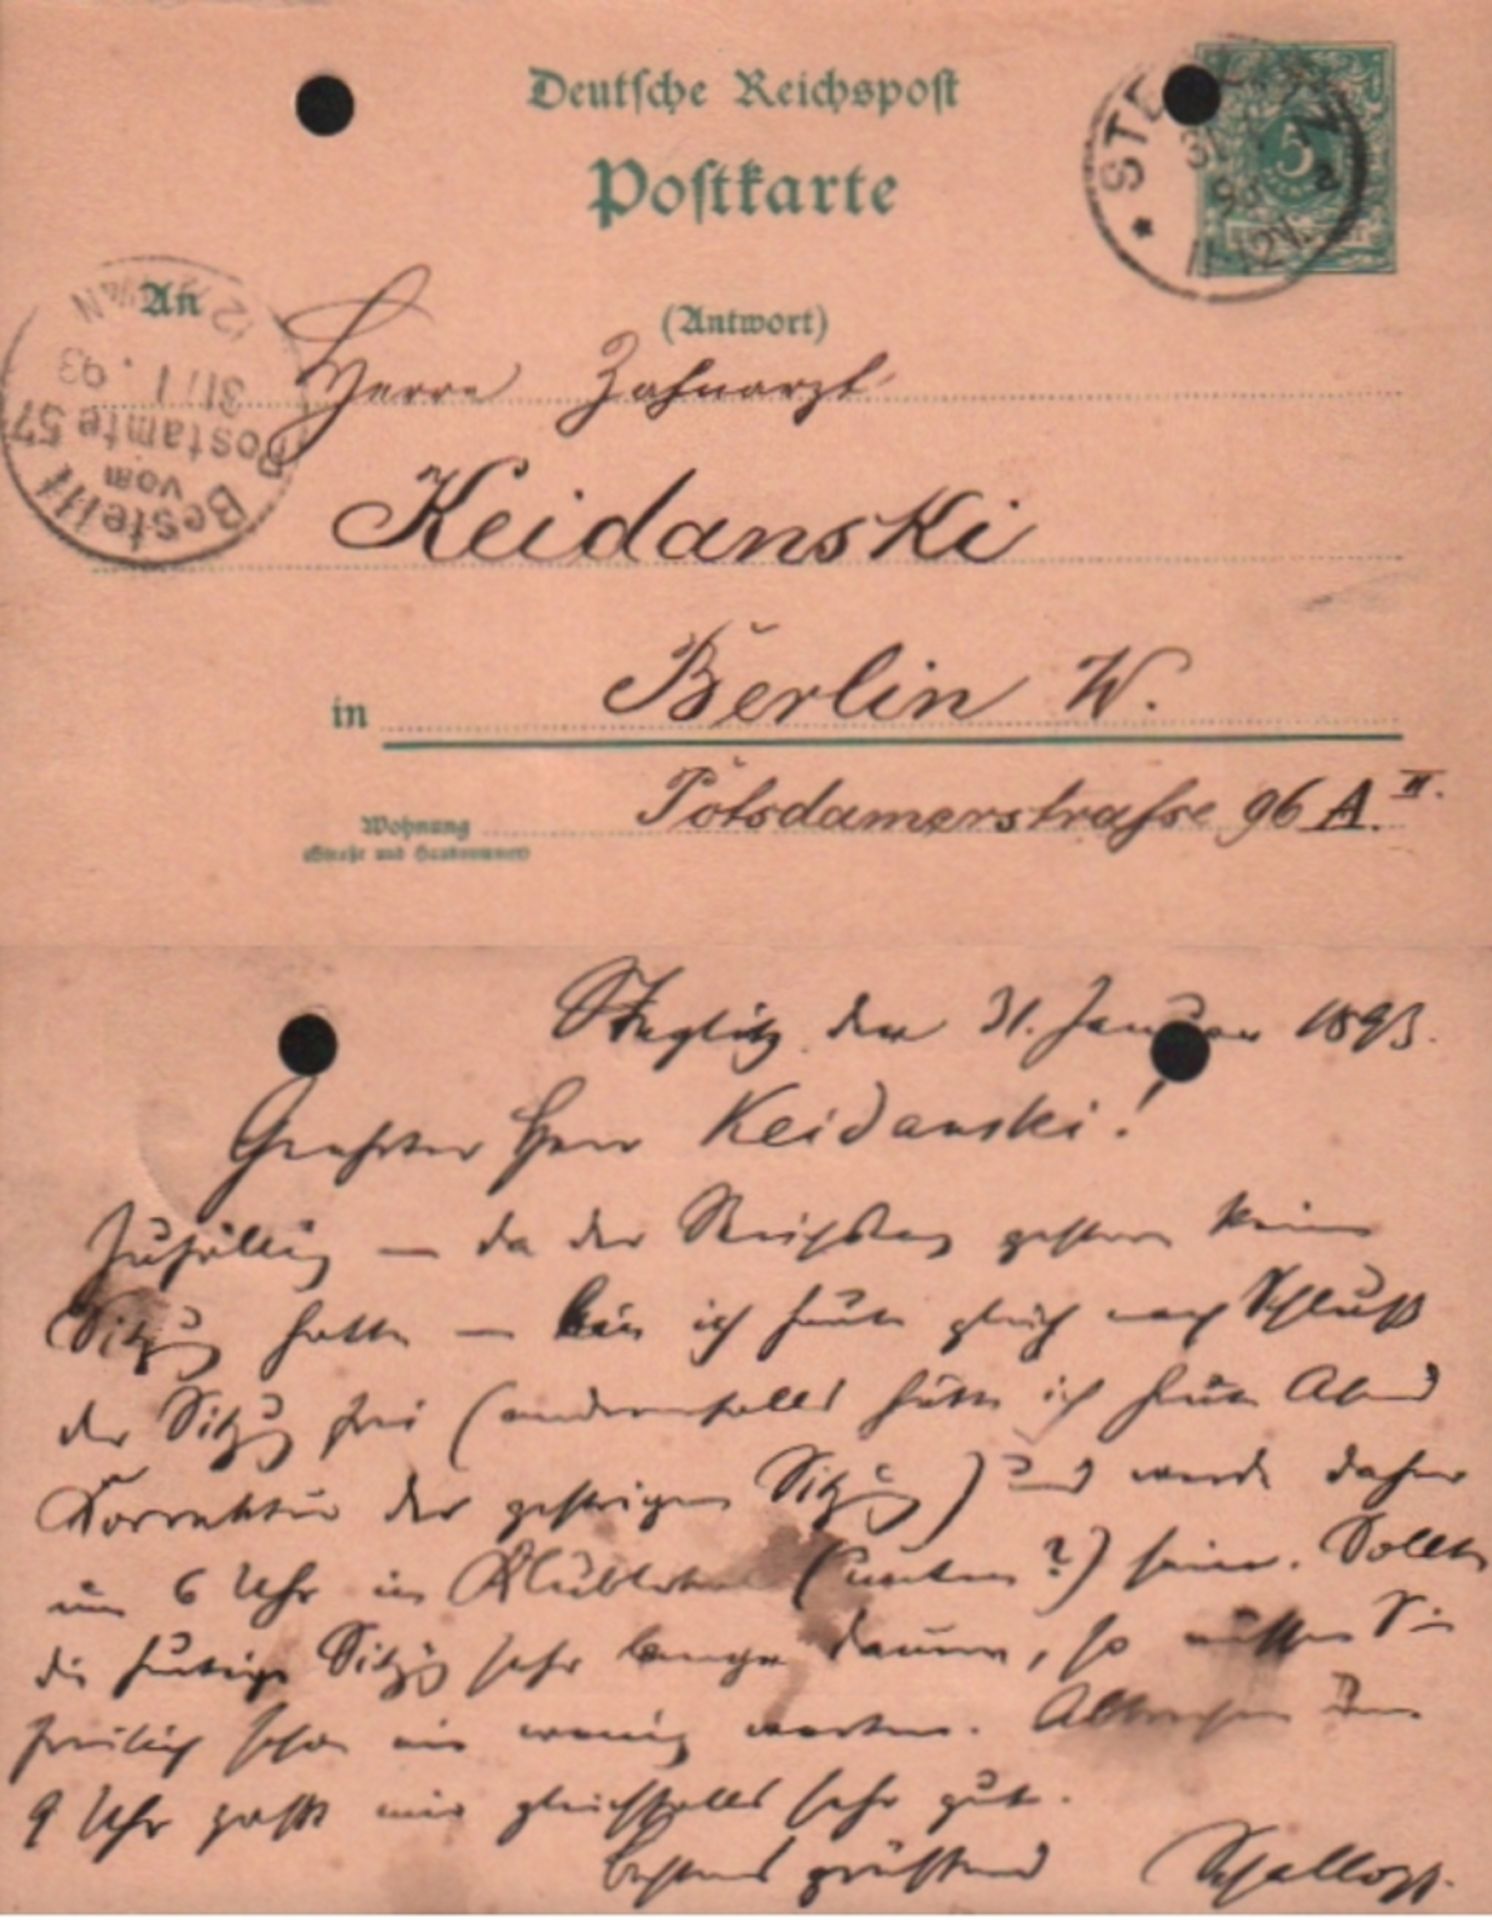 Deutsche Reichspost
Postkarte
(Antwort)
An
Herrn Zahnarzt
Keidanski
in Berlin W.
Wohnung Potsdamerstrasse 96 A. II.
(Straße und Hausnummer)
5
31 1
93
11-12V.
Bestellt
vom
Postamte 57
31/1.93
Steglitz den 31. Januar 1893.
Geehrter Herr Keidanski!
Zufällig — da der Reichstag gestern keine
Sitzung hatte — bin ich heute gleich nach Schluß
der Sitzung frei (andernfalls hätte ich heute Abend
Korrektur der gestrigen Sitzung) und werde daher
um 6 Uhr im Klublokal (unten?) sein. Sollte
die heutige Sitzung sehr lange dauern, so müssen Sie
freilich schon ein wenig warten.
9 Uhr paßt mir gleichfalls sehr gut.
bestens grüßend Schallopp.